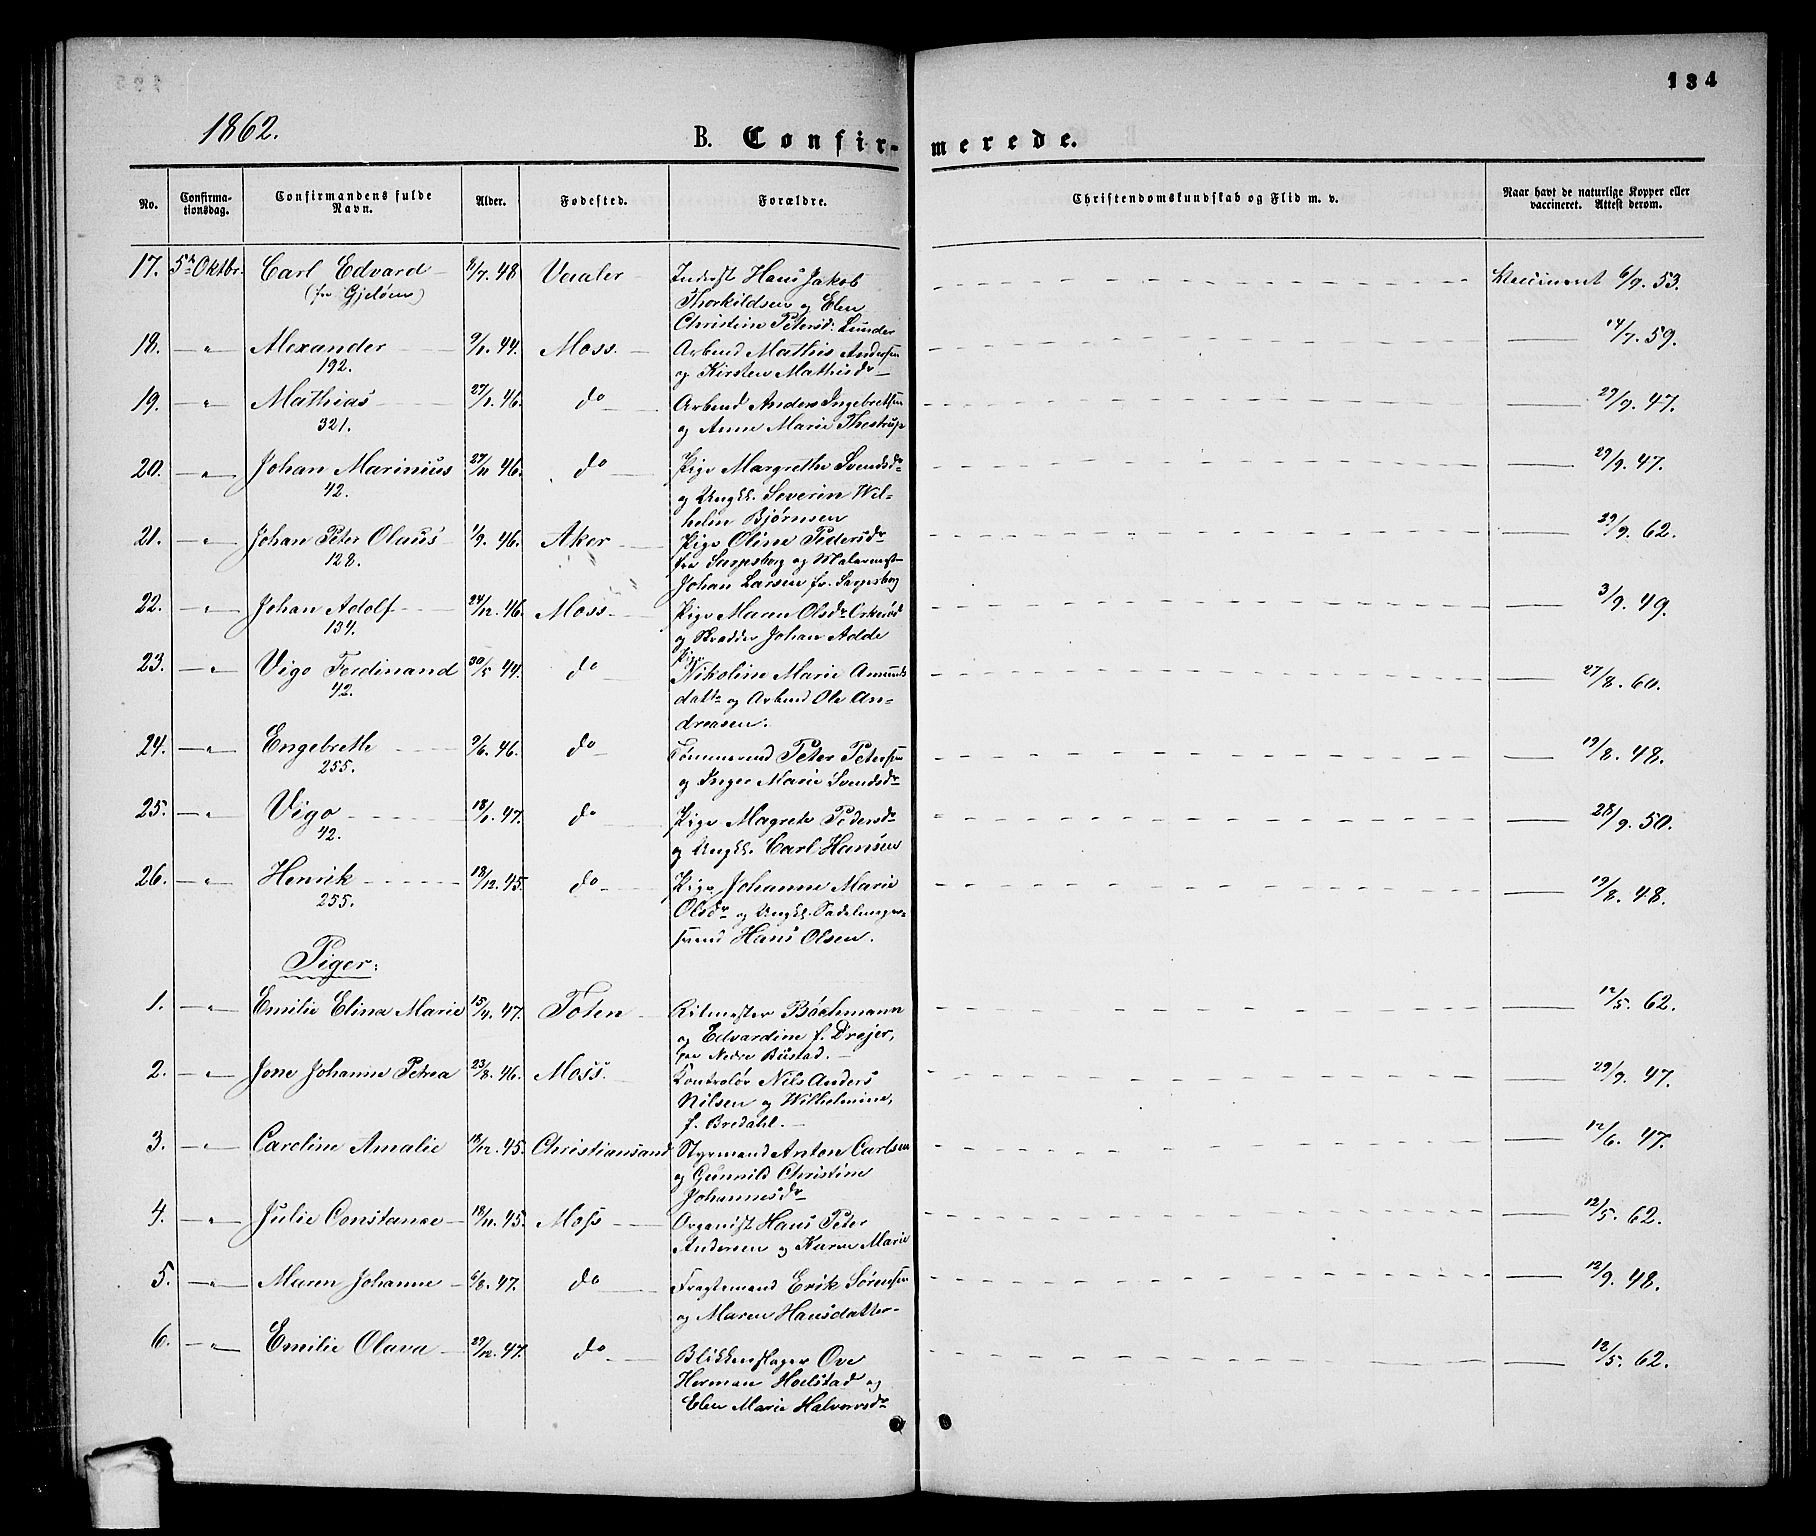 134
1862.
B. Confirmerede.
No. Confirmationsdag. Confirmandens fulde Navn. Alder. Fødested. Forældre. Christendomskundskab og Flid m. v. Naar havt de naturlige Kopper eller vaccineret. Attest derom.
17. 5te Oktbr. Carl Edvard 8/7. 48 Vaaler Inderst Hans Jakob 6/9. 53.
(fra Gjeløen) Thorkildsen og Elen
Christine Petersd: Lunder
18. — " — Alexander 9/1. 44. Moss. Arbmd Mathis Andersen 14/7. 59.
192. og Kirsten Mathisdr
19. — " — Mathias 27/1. 46. do Arbmd Anders Ingebretsen 29/9. 47.
321. og Anne Marie Thestrup
20. — " — Johan Marinius 27/11 46. do Pige Margrethe Svendsdr 29/9. 47.
42. og Ungkl. Severin Wil-
helm Bjørnsen
21. — " — Johan Peter Olaus 1/9. 46. Aker Pige Oline Pedersdr 29/9. 62.
128. fra Sarpsborg og Malermest
Johan Larsen fr. Sarpsborg
22. — " — Johan Adolf 24/12. 46. Moss. Pige Maren Olsdr 3/9. 49.
134. og Skrædder Johan Adde
23. — " — Vigo Ferdinand 30/5 44. do Pige Nikoline Marie Amunds 27/8. 60.
42. datt og Arbmd Ole An-
dreasen.
24. — " — Engebrethe 9/6. 46. do Tømmermd Peter Petersen 19/8. 48.
255. og Inger Marie Svendsdr
25. — " — Vigo 18/1. 47. do Pige Magrete Pedersdr 28/9. 50.
42. og Ungkl. Carl Hansen
26. — " — Henrik 18/12. 45. do Pige Johanne Marie 19/8. 48.
255. Olsdr og Ungkl. Sadelmager-
svend Hans Olsen.
Piger:
1. — " — Emilie Elina Marie 15/4. 47. Toten Ritmester Bøchmann 12/5. 62.
og Edvardine f. Drejer,
paa Nedre Bustad.
2. — " — Jone Johanne Petrea 23/8. 46. Moss. Kontrolør Nils Anders 29/9. 47.
Nilsen og Wilhelmine,
f. Bredahl.
3. — " — Caroline Amalie 13/12. 45. Christiansand Styrmand Anton Carlsen 12/6. 47.
og Gunnild Christine
Johannesdr
4. — " — Julie Constanse 18/11. 45. Moss Organist Hans Peter 12/5. 62.
Andersen og Karen Marie
5. — " — Maren Johanne 6/8. 47. do Fragtemand Erik Sørensen 12/9. 48.
og Maren Hansdatter
6. — " — Emilie Olava 29/12. 47. do Blikkenslager Ove 12/5. 62.
Herman Hoelstad og
Elen Marie Halvorsdr